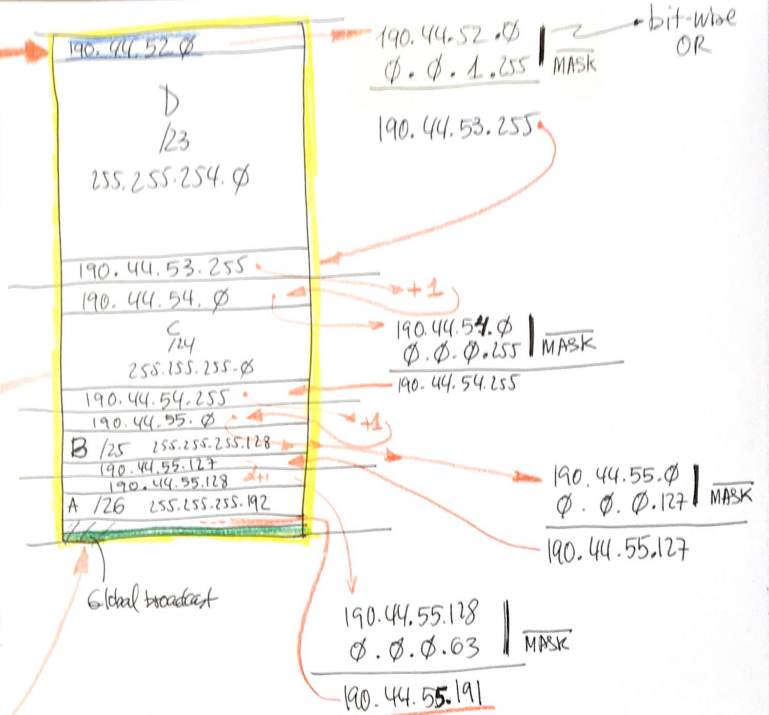 190.44.52.Ø
D
/23
255.255.254.Ø
190.44.53.255
190.44.54.Ø
C
/24
255.255.255.Ø
190.44.54.255
190.44.55.Ø
B /25 255.255.255.128
190.44.55.127
190.44.55.128
+1
A /26 255.255.255.192
Global broadcast
190.44.52.Ø
Ø.Ø.1.255 | MASK
bit-wise
OR
190.44.53.255
+1
190.44.54.Ø
Ø.Ø.Ø.255 | MASK
190.44.54.255
+1
190.44.55.Ø
Ø.Ø.Ø.127 | MASK
190.44.55.127
190.44.55.128
Ø.Ø.Ø.63 | MASK
190.44.55.191